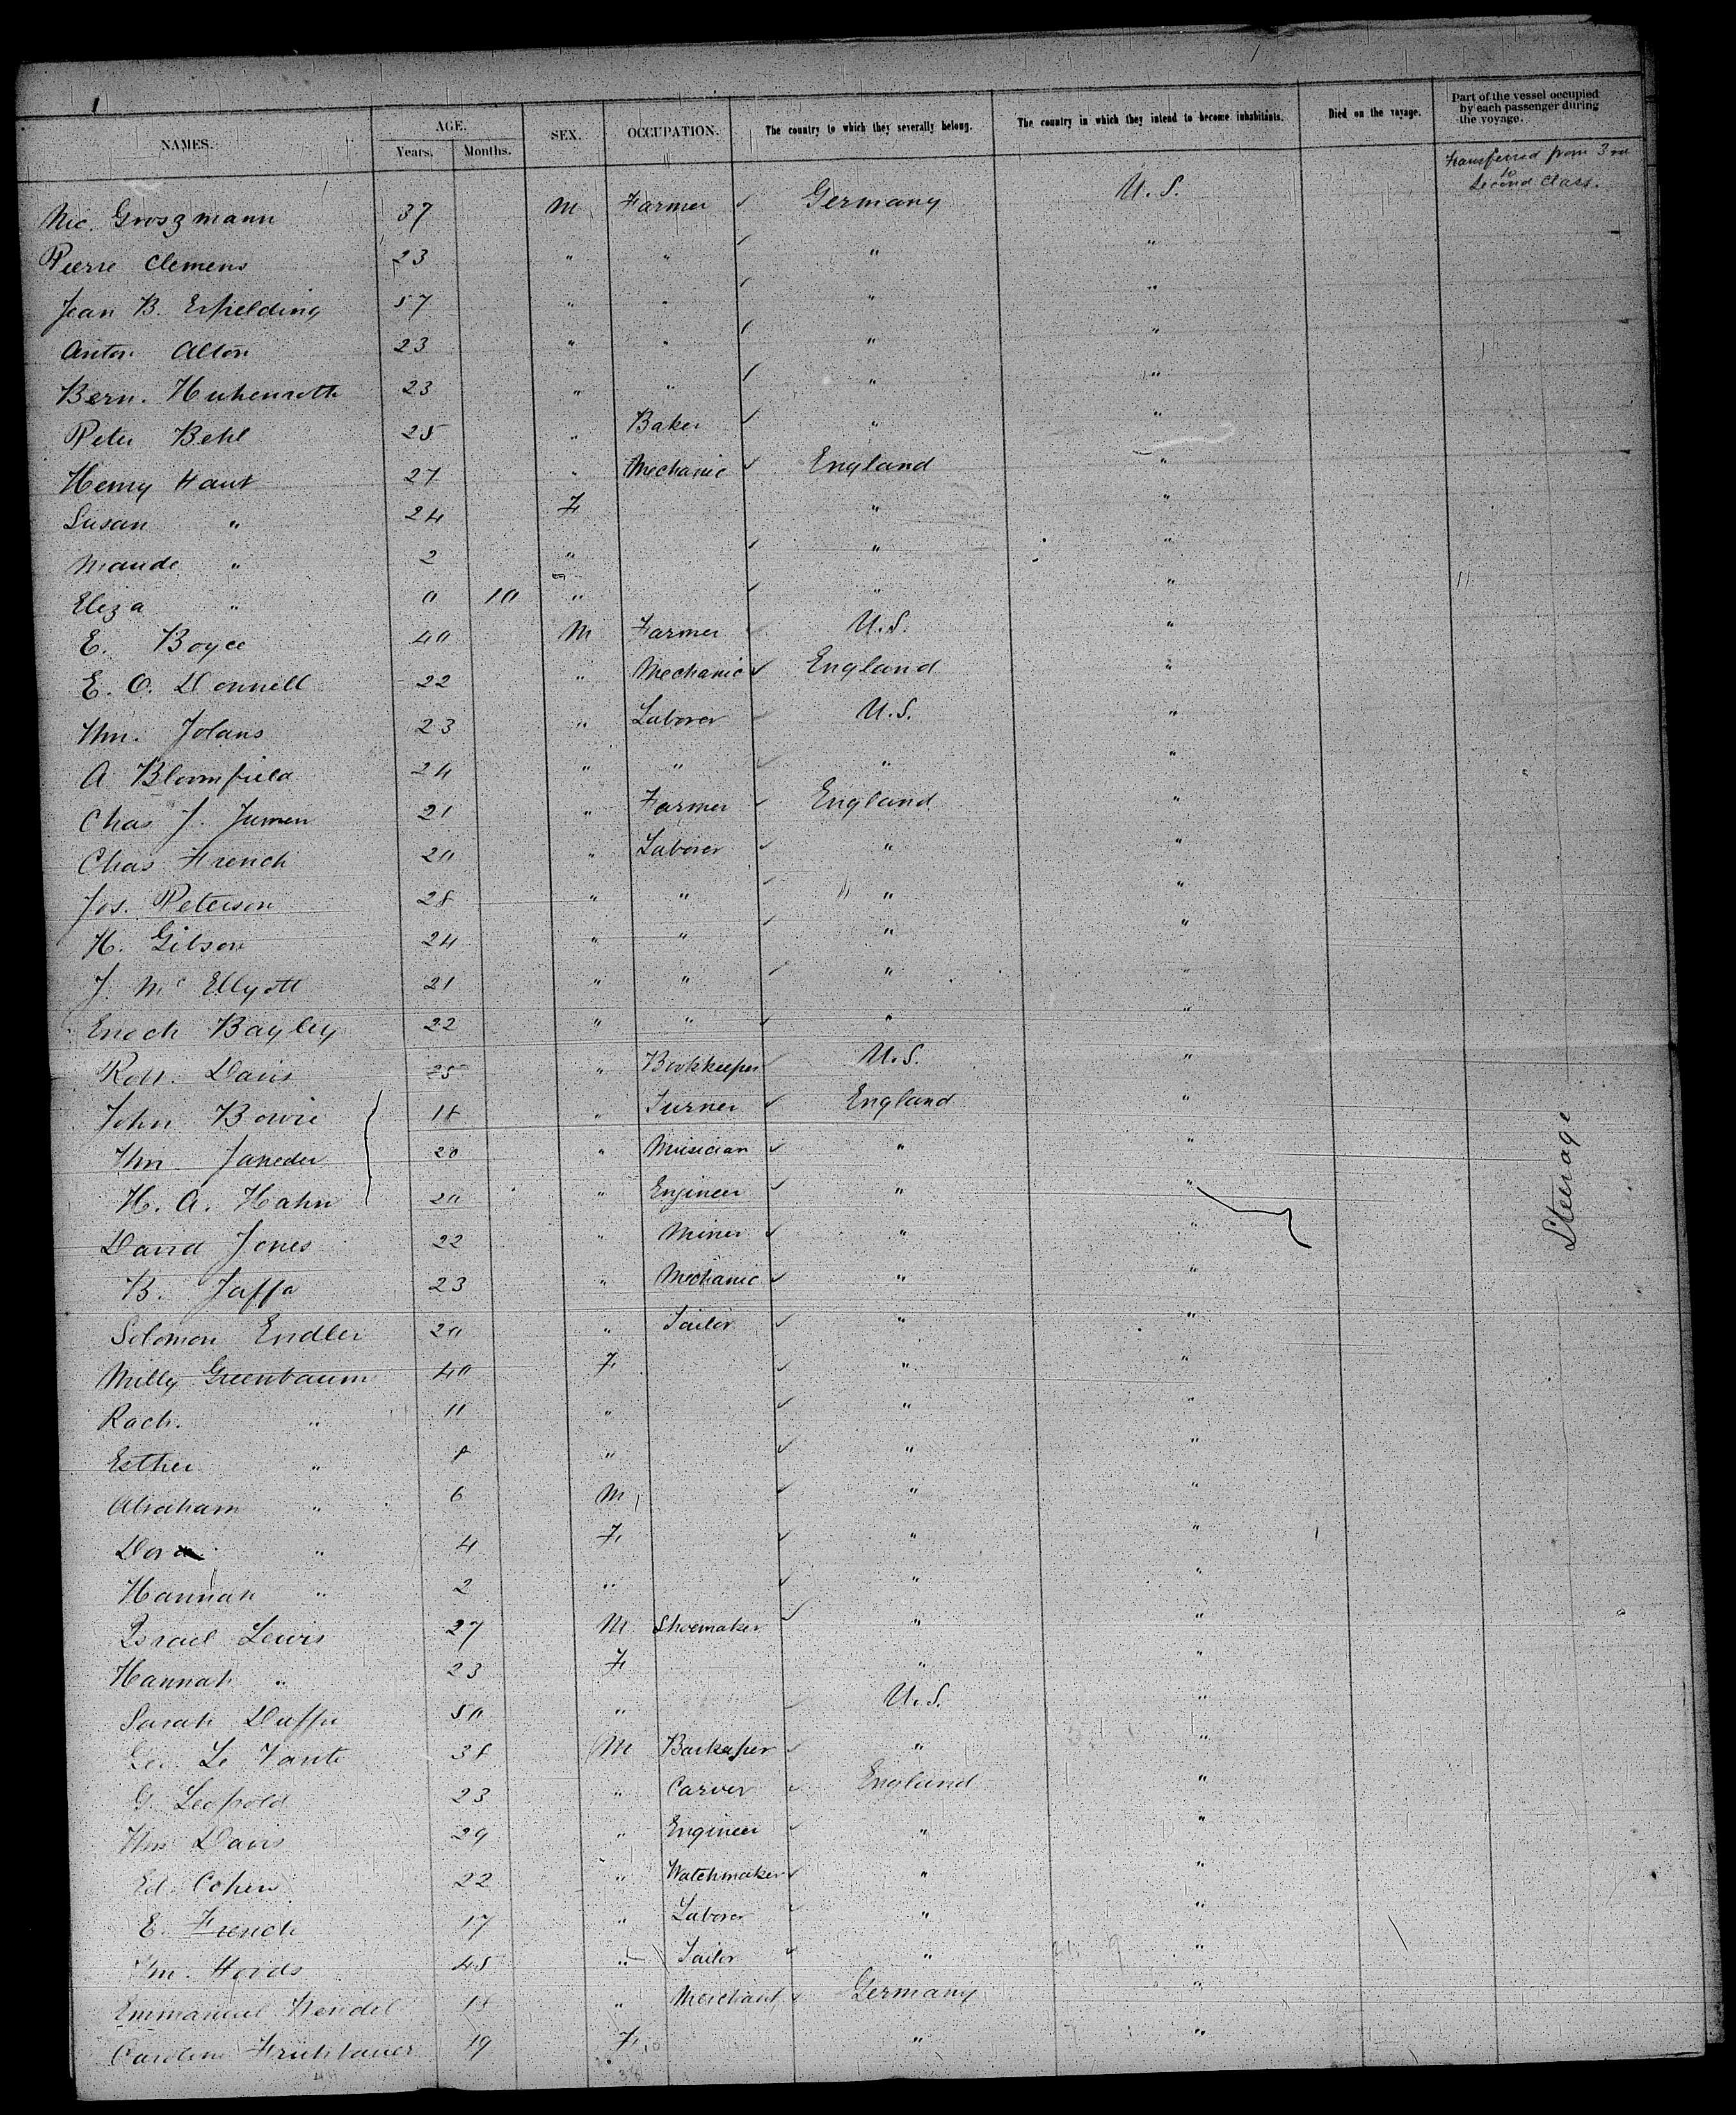 NAMES. AGE. Years. Months. SEX. OCCUPATION. The country to which they severally belong. The country in which they intend to become inhabitants. Died on the voyage. Part of the vessel occupied by each passenger during the voyage.
Transferred from 3rd to Second Class.
Nic. Groszmann 37 M Farmer ✓ Germany U.S.
Pierre Clemens 23 " " ✓ " "
Jean B. Erpelding 57 " " ✓ " "
Anton Alton 23 " " ✓ " "
Bern. 23 " " ✓ " "
Peter Behl 25 " Baker ✓ " "
Henry Haut 27 " Mechanic ✓ England "
Susan " 24 F " "
Maude " 2 " ✓ " "
Eliza " 0 10 " ✓ " "
E. Boyce 40 M Farmer ✓ U.S. "
E. O. Donnell 22 " Mechanic ✓ England "
Wm. Jolans 23 " Laborer ✓ U.S. "
A Bloomfield 24 " " ✓ " "
Chas J. 21 " Farmer ✓ England "
Chas French 20 " Laborer ✓ " "
Jos. Peterson 28 " " ✓ " "
H. Gibson 24 " " ✓ " "
J. Mc Ellyott 21 " " ✓ " "
Enoch Bayley 22 " " ✓ " "
Robt. Davis 25 " Bookkeeper ✓ U.S. "
John Bowie 18 " Turner ✓ England "
Wm. Janeder 20 " Musician ✓ " "
H. A. Hahn 20 " Engineer ✓ " "
David Jones 22 " Miner ✓ " "
B. Jaffa 23 " Mechanic ✓ " "
Solomon Endler 20 " Tailor ✓ " "
Milly Greenbaum 40 F ✓ " "
Rach. " 11 " ✓ " "
Esther " 8 " ✓ " "
Abraham " 6 M ✓ " "
Dora " 4 F ✓ " "
Hannah " 2 " ✓ " "
Israel Lewis 27 M Shoemaker ✓ " "
Hannah " 23 F " "
Sarah Duffie 50 " ✓ U.S. "
Geo. Le 38 M Barkeeper ✓ " "
G. Leopold 23 " Carver ✓ England "
Wm Davis 29 " Engineer ✓ " "
Ed. Cohen 22 " Watchmaker ✓ " "
E. French 17 " Laborer ✓ " "
Wm. Hords 45 " Tailor ✓ " "
Emmanuel Wendel 18 " Merchant ✓ Germany "
Caroline Fruhbauer 19 F " "
Steerage